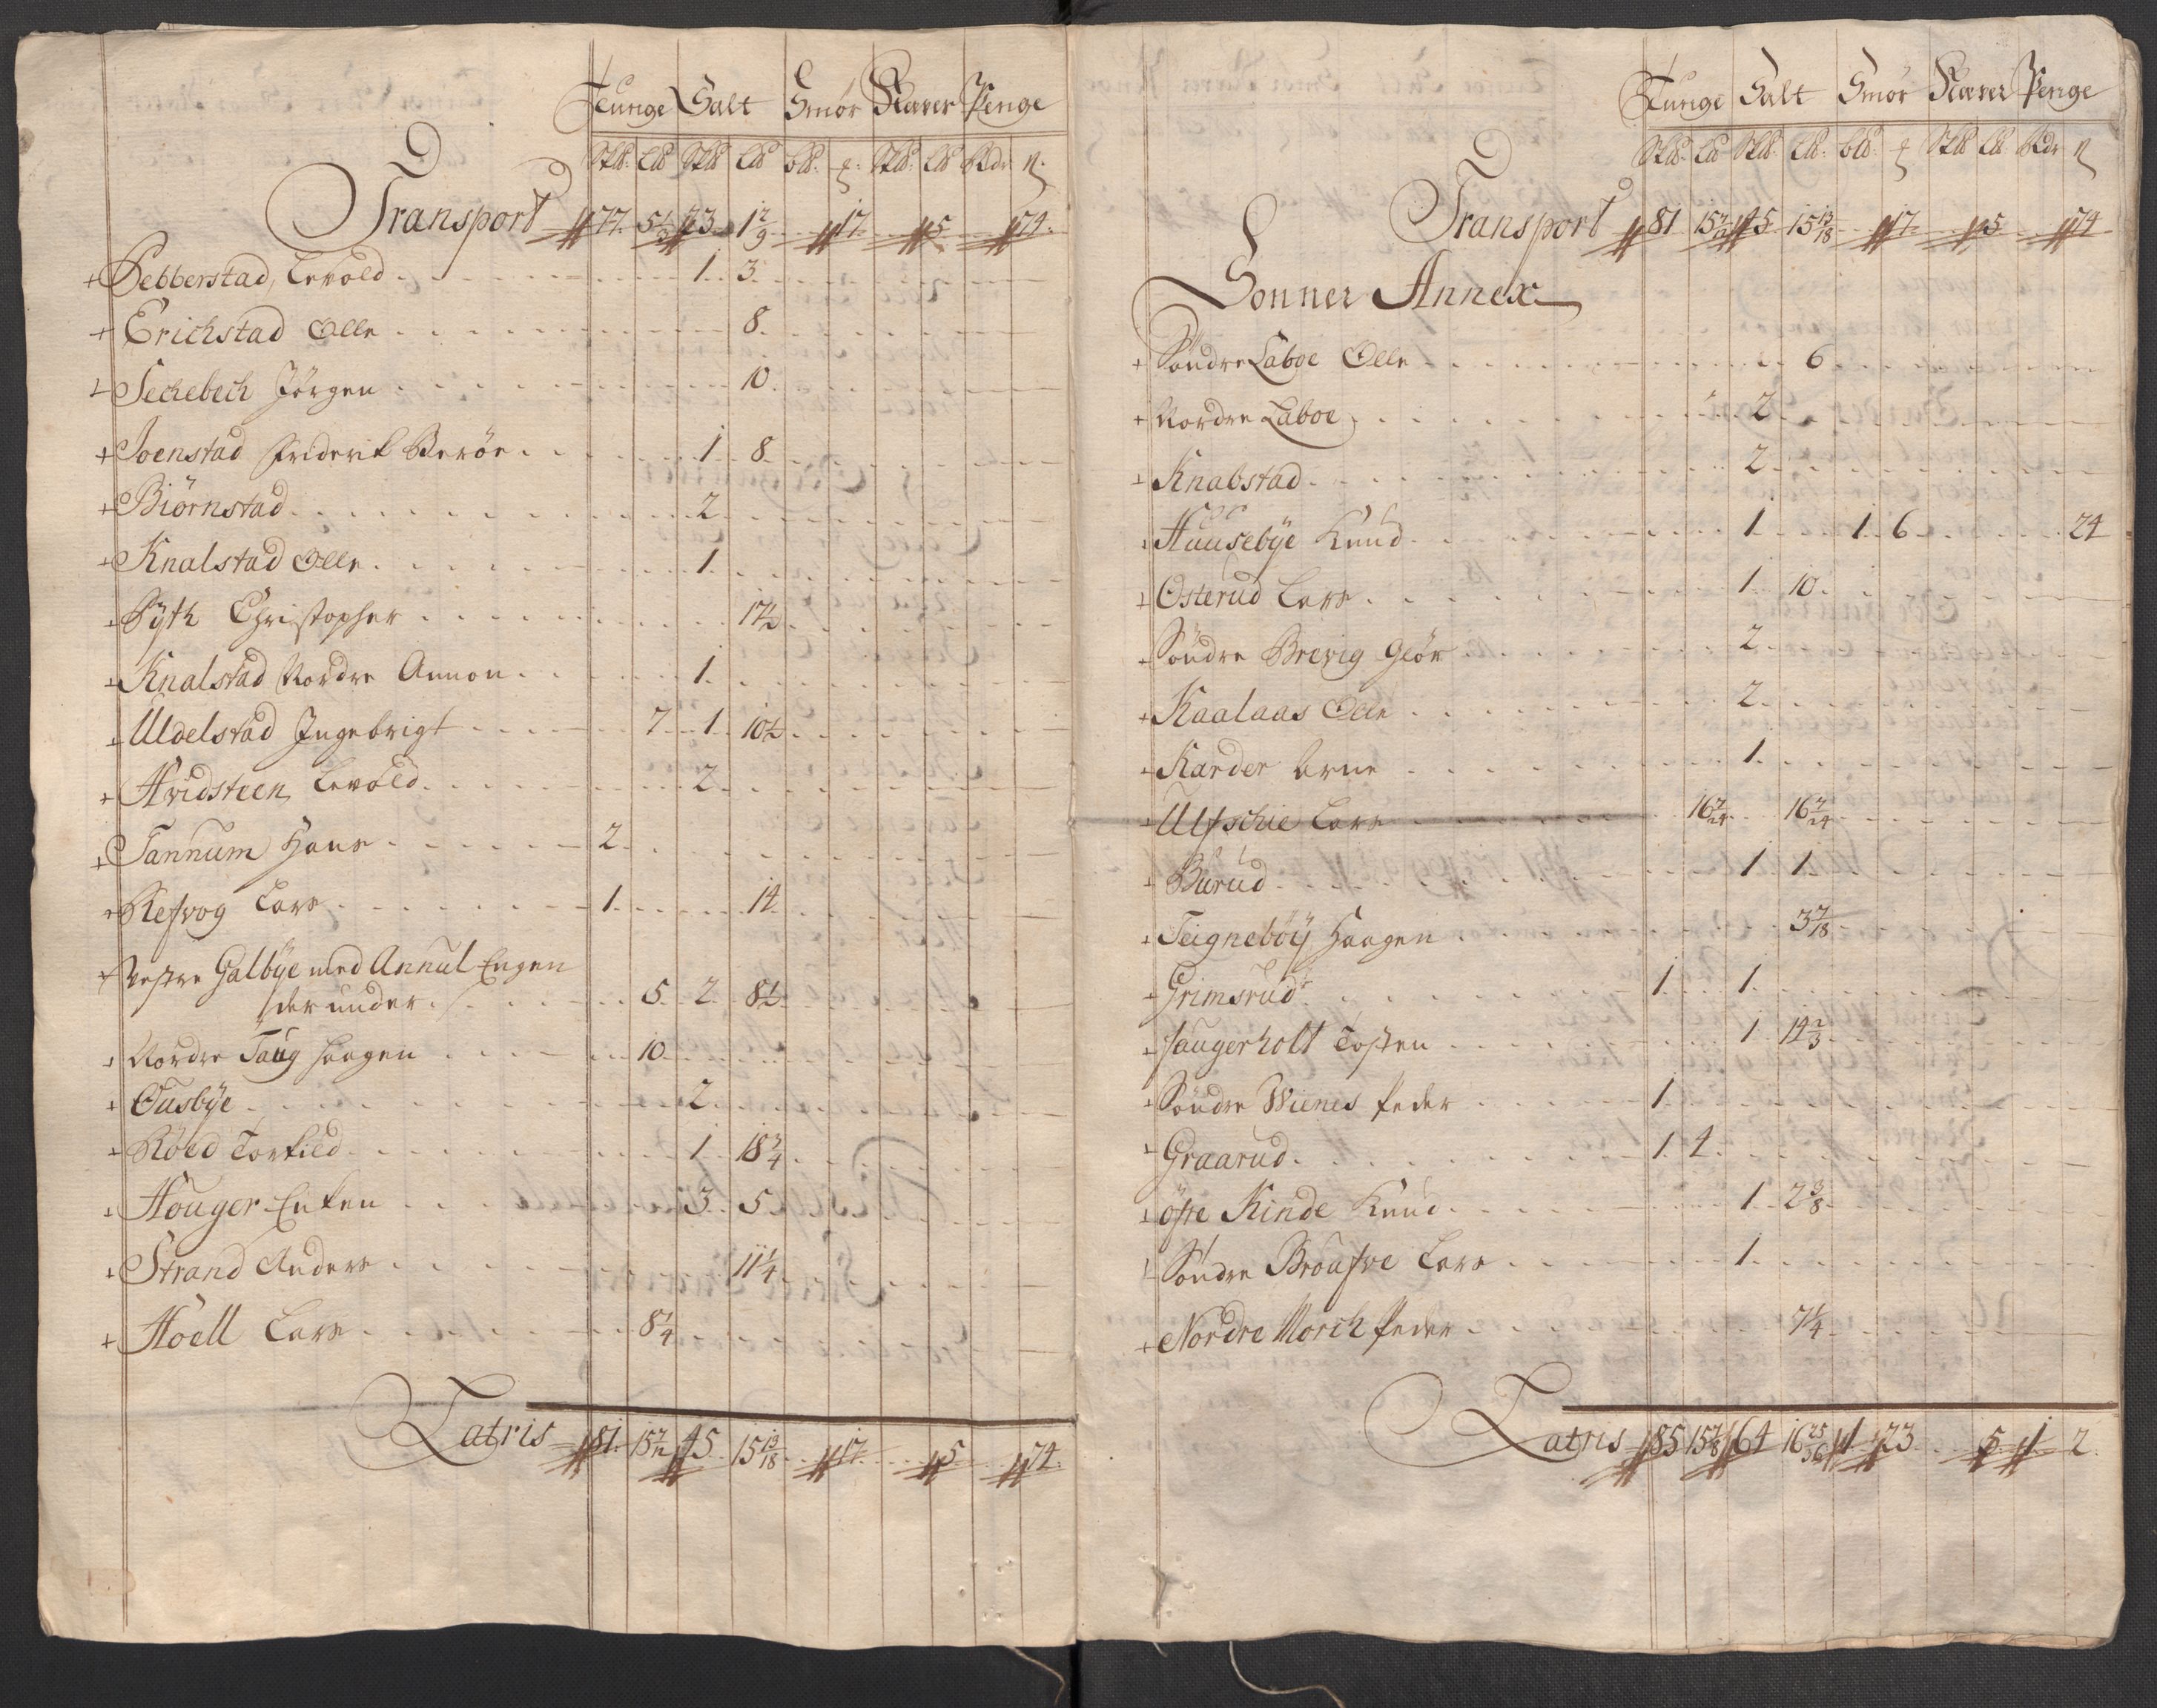 Tunge Salt Smør Skarer Penge
Skt. Lb Skt. Lb bb. Skt. Lb Rdr
Transport 77 5 1/2 43 1 2/9 17 5 74
+ Sebberstad, Levold 1 3
+ Erichstad Olle 8
+ Sechebech Jörgen 10
+ Joenstad Friderik 1 8
+ Biörnstad 2
+ Knalstad Olle 1
+ Pÿth Christopher 17 1/2
+ Knalstad Nordre Amon 1
+ Uldelstad Ingebrigt 7 1 10 1/2
+ Hvidsteen Levold 2
+ Tannum Hans 2
+ Refvog Lars 1 14
+ Vestre Galbÿe med Annul Engen
der under 5 2 8 1/2
+ Nordre Taug Haagen 10
+ Ousbÿe 2
+ Röed Torkild 1 18 3/4
+ Houger Enken 3 5
+ Strand Anders 11 1/4
+ Höell Lars 8 1/4
Latris 81 15 7/12 45 15 13/18 17 5 74
Tunge Salt Smör Skarer Penge
Skt. Lb Skt. Lb. bb. Skt Lb Rdr
Transport 81 15 7/12 45 15 13/18 17 5 74
Sonner Annex
+ Söndre Laboe Olle 6
+ Nordre Laboe 2
+ Knabstad 2
+ Huusebÿe Knud 1 1 6 24
+ Osterud Lars 1 10
+ Söndre Brevig 2
+ Kaalaas Olle 2
+ Karder Arne 1
+ Ulfschie Lars 16 7/24 16 7/24
+ Burud 1 1
+ Teigneböÿ Haagen 3 7/18
+ Grimsrud 1 1
+ Haugerholt Tosten 1 14 2/3
+ Söndre Wiines Peder 1
+ Graarud 1 4
+ öfre Kinde Knud 1 2 3/8
+ Söndre Broufve Lars 1
+ Nordre Morch Peder 7 1/4
Latris 85 15 7/8 64 16 25/36 1 23 5 1 2